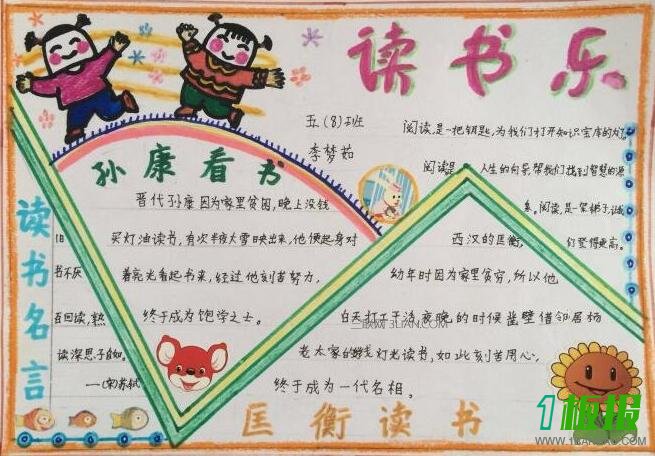 读书乐
五(8)班
李梦茹
阅读,是一把钥匙,为我们打开知识宝库的
阅读是 人生的向导帮我们找到智慧的源
阅读,是一架梯子,让
们登得更高。
孙康看书
晋代孙康因为家里贫困,晚上没钱
买灯油读书,有次半夜大雪映出来,他便起身对
着亮光看起书来,经过他刻苦努力,
终于成为饱学之士。
读书名言
旧
书不厌
百回读,熟
读深思子自知。
——(宋)苏轼
西汉的匡衡,
幼年时因为家里贫穷,所以他
白天打工干活夜晚的时候凿壁借邻居杨
老太家的灯光读书,如此刻苦用心,
终于成为一代名相。
匡衡读书
三联网 3LIAN.COM
1板报